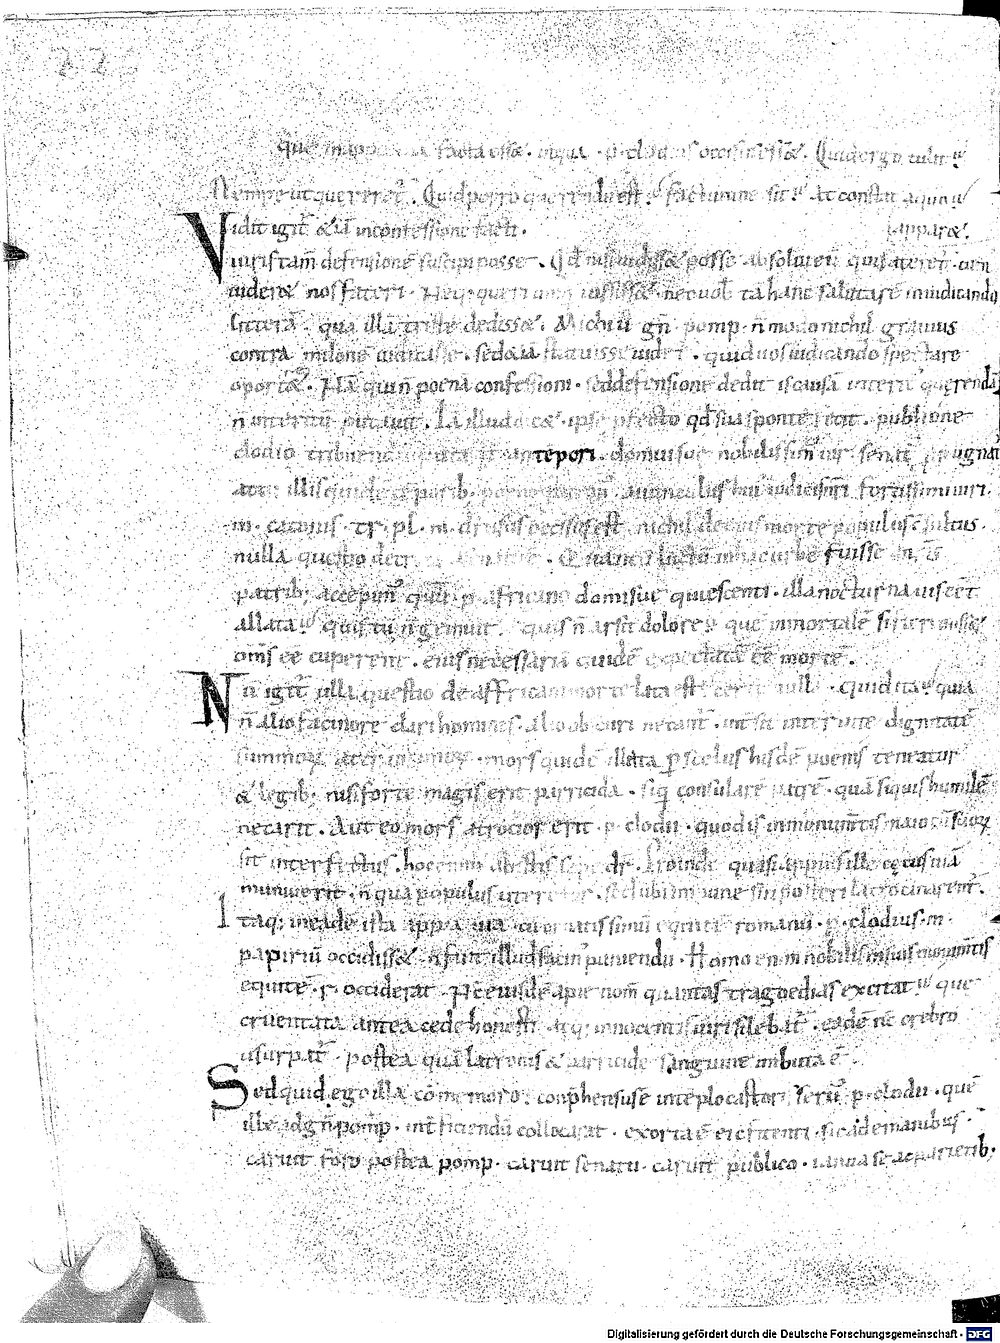 22
que in appia uia facta esset. in qua .p. clodius occisus esset. Quid ergo tulit
Nempe ut quereret͛. Quid porro querendu est. factumne sit. At constat. a quo
Vidit igit͛ etiā in confessione facti. tanparet.
iuris tam̄ defensionē suscipi posse. Qd nisi uidisset posse absoluere
uideret nos fateri. Neq; queri umquā iussisset nec uob̄ tā hanc salutarē in iudicando
litterā. qua illā tristē dedisset. Michi ū gn̄. pomp. n̄ modo nichil grauius
contra milonē iudicasse. sed etiā statuisse uidet͛. quid uos iudicando spectare
oporteret. Nā qui n̄ poenā confessioni. sed defensionē dedit is causā interit͛ querendā
n̄ interitū putauit. Iā illud dicet. ipse pfecto qd sua sponte fecit. publione
clodio tribuendū tempori. domi suę nobilissim͛ uir. senat͛ ppugnat
atq; illis quidē tēporib; auunculus hui͛ iudicis nr̄i fortissimi uiri.
m. catonis. tr. pl. m. drusus occisus est. nichil de eius morte populus csultus
nulla questio decreta a senatu. Quantū luctū in hac urbe fuisse
patrib; accepim͛ cum p. africano domi sue quiescenti. illa nocturna uis eēt
allata. quis tū n̄ gemuit. quis n̄ arsit dolore. que inmortalē si fieri posset
om̄s eē cuperent. eius necessariā quidē expectatā eē mortē.
Nū igit͛ ulla questio de affricani morte lata est. certe nulla. quid ita. quia
n̄ alio facinore clari homines. alio obscuri necant͛. int̄sit inter uite dignitatē
summorū atq; infimorū. mors quidē illata p scelus hisdē poenis teneatur
et legib; nisi forte magis erit parricida. siq; consularē patrē. quā siquis humilē
necarit. Aut eo mors atrocior erit .p. clodii. quod is in monumtis maiorū suorū
sit interfectus. hoc enim ab istis sepe dr̄. Proinde quasi appius ille cecus uiā
muniuerit. n̄ qua populus uteretur. s; ubi inpune sui posteri latrocinarent͛.
Itaq; in eade ista appia uia cū ornatissimū equitē romanū .p. clodius. m.
papiriū occidisset. n̄ fuit illud facin͛ puniendū. Homo enim nobilis in suis monumtis
equitē .r. occiderat. Nc eiusdē apię nom̄ quantas tragoedias excitat. que
cruentata antea cede honesti atq; innocentis uiri silebat͛. eadē nc crebro
usurpat͛. postea quā latronis et parricide sanguine imbuta ē.
Sed quid ego illa cōmemoro. cōphensus ē in templo castoris seru͛ .p. clodii. quē
ille ad gn̄ pomp. int̄ficiendū collocarat. extorta ē ei cfitenti. sica de manibus.
caruit foro postea pomp. caruit senatu. caruit publico. ianua se ac parietib;
Digitalisierung gefördert durch die Deutsche Forschungsgemeinschaft - DFG